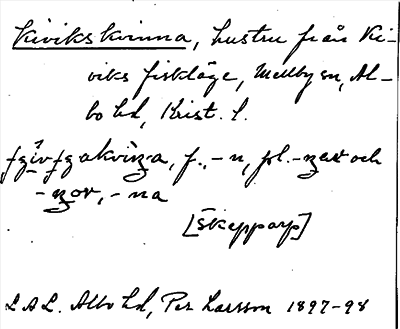 Kivikskvinna, hustru från Ki-
viks fiskläge, Mellby sn, Al-
bo hd, Krist. l.
f., -n, pl. och
-na
[Skepparp]
L A L. Albo hd, Per Larsson 1897-98